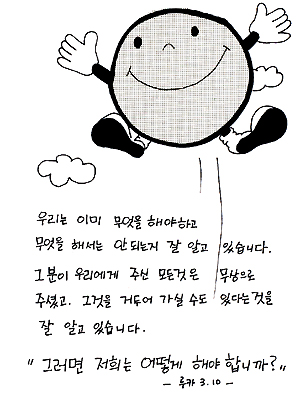 우리는 이미 무엇을 해야하고
무엇을 해서는 안되는지 잘 알고 있습니다.
그분이 우리에게 주신 모든것은 무상으로
주셨고. 그것을 거두어 가실 수도 있다는것을
잘 알고 있습니다.
" 그러면 저희는 어떻게 해야 합니까? "
- 루카 3.10 -